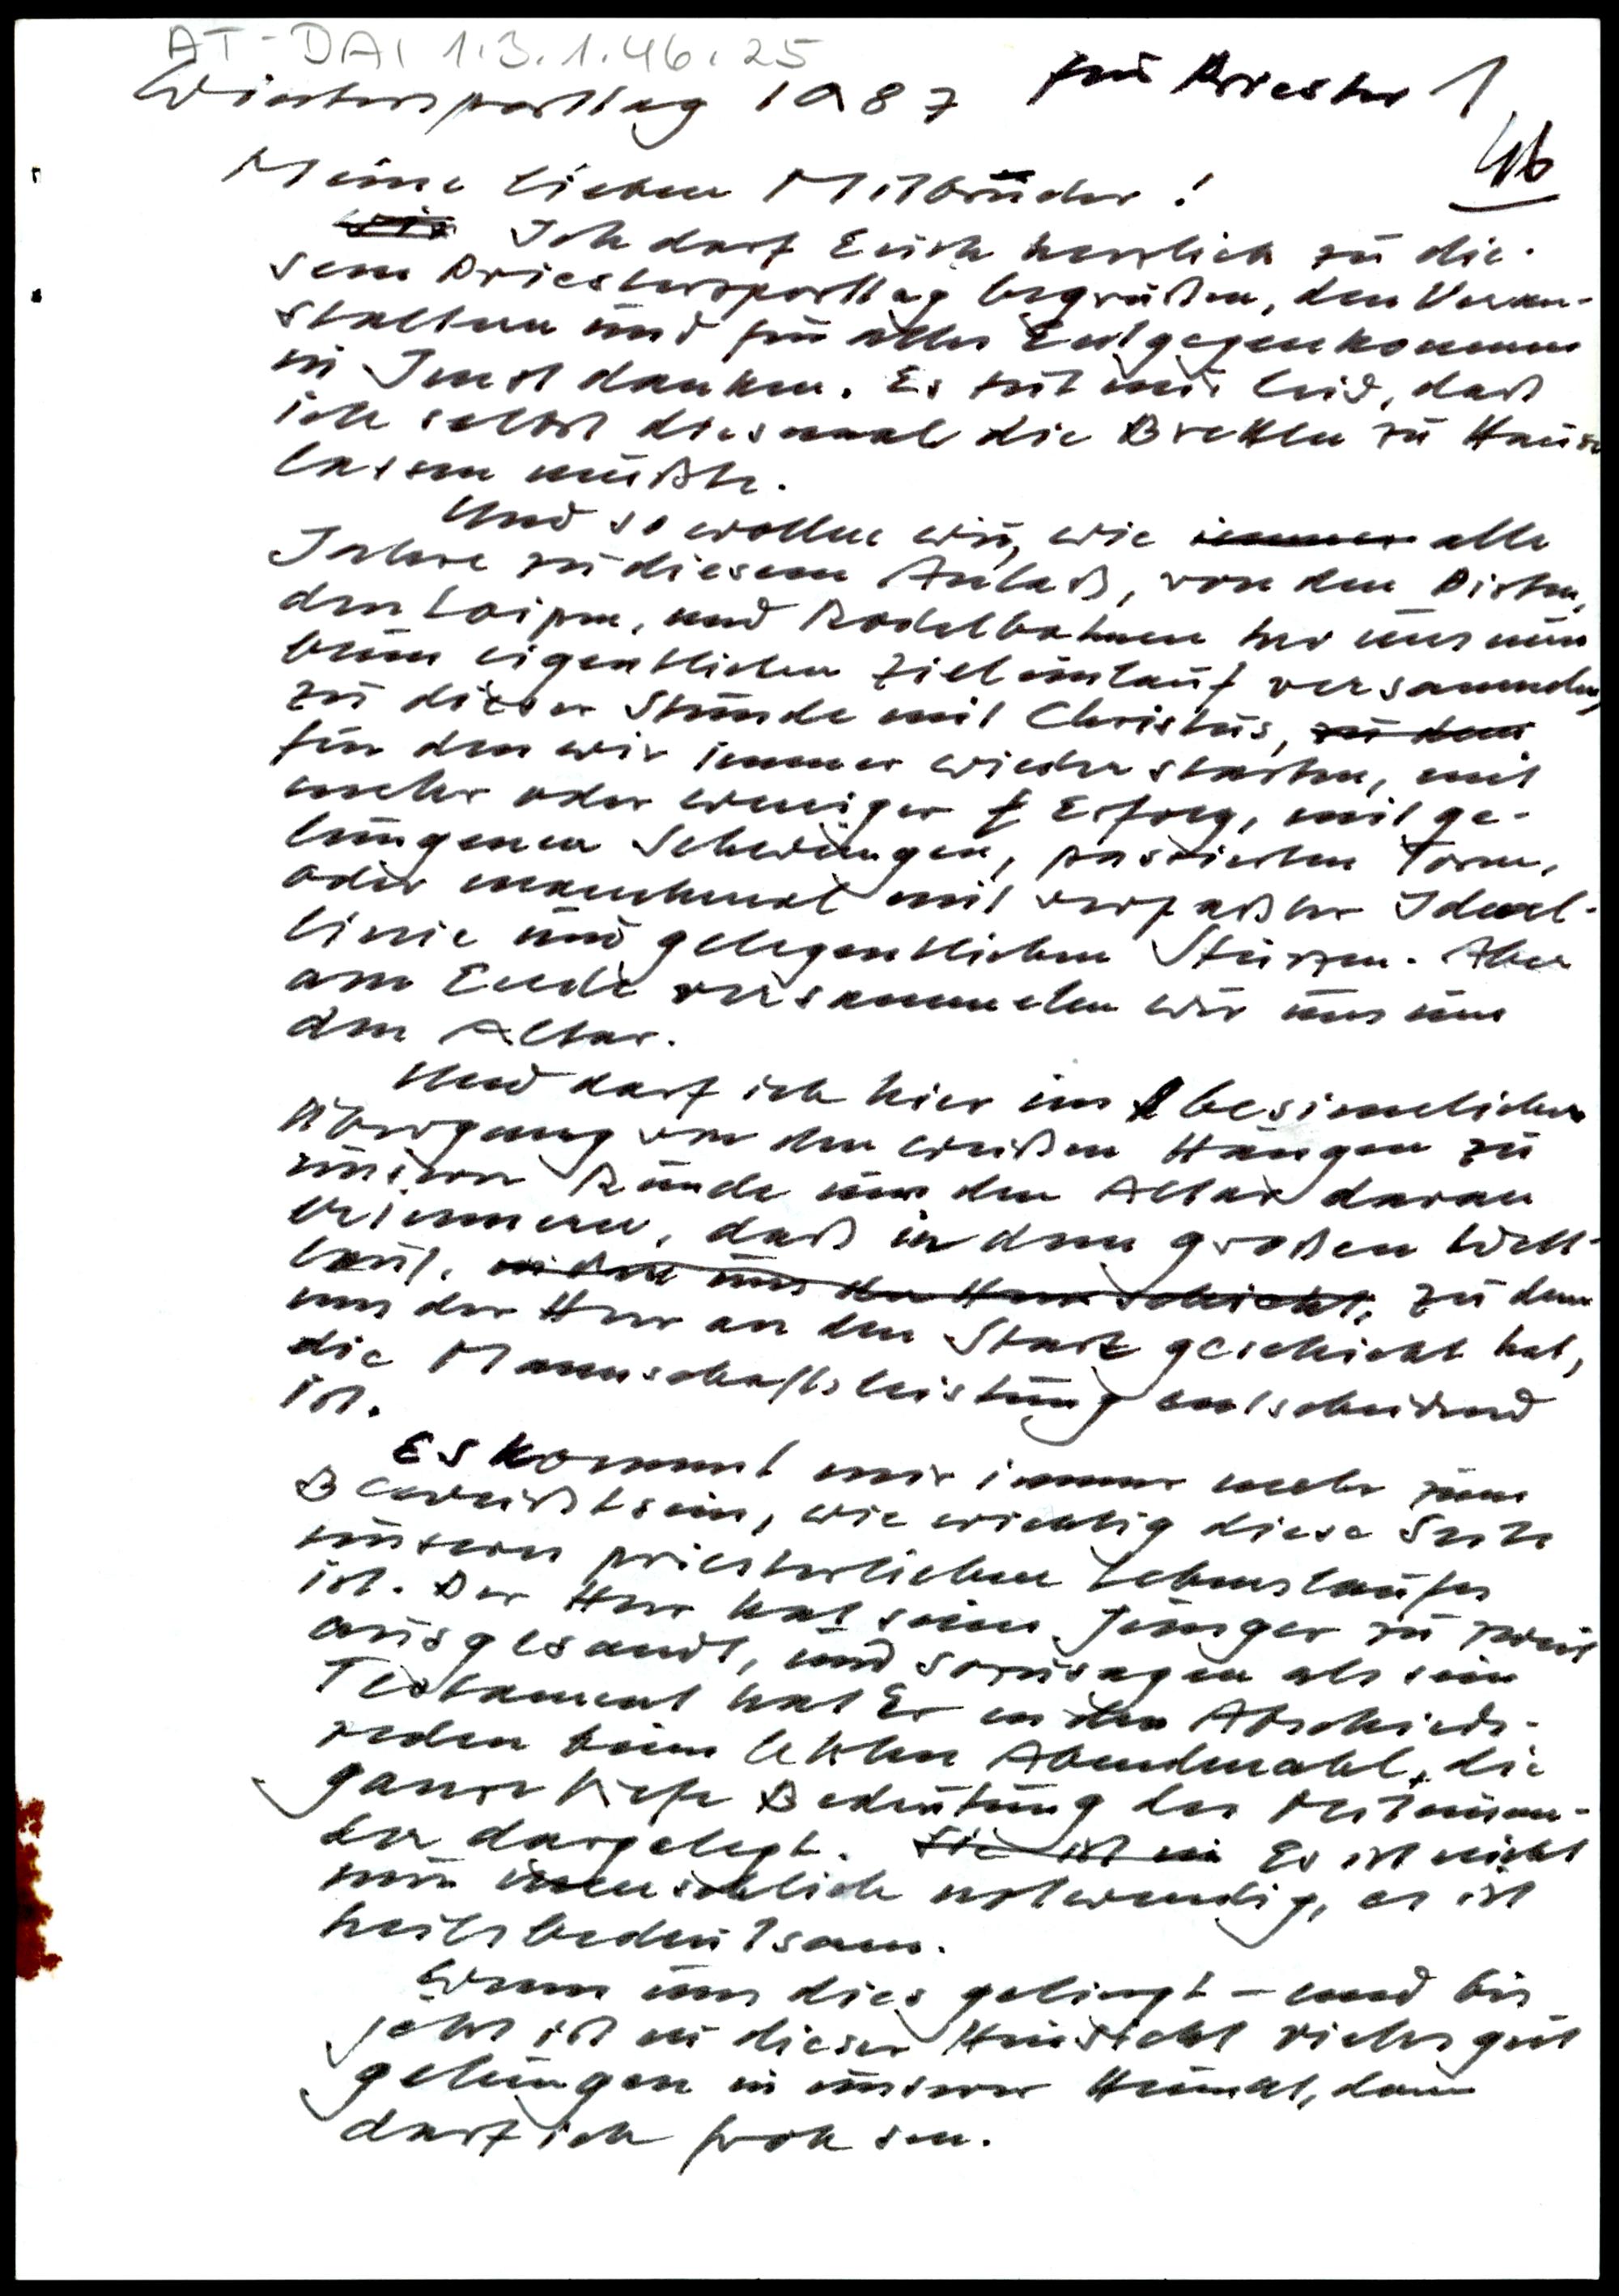 AT-DAI 1.3.1.46.25
Wintersporttag 1987 für Priester 1
46
Meine lieben Mitbrüder!
Wir Ich darf Euch herzlich zu die-
sem Priestersporttag begrüßen, den Veran-
staltern und für alles Entgegenkommen
in Imst danken. Es tut mir leid, daß
ich selbst diesmal die Brettln zu Hause
lassen mußte.
Und so wollen wir, wie immer alle
Jahre zu diesem Anlaß, von den Pisten,
den Loipen, und Rodelbahnen her uns nun
beim eigentlichen Zieleinlauf versammeln,
zu dieser Stunde mit Christus, zu dem
für den wir immer wieder starten, mit
mehr oder weniger f Erfolg, mit ge-
lungenen Schwüngen, passierten Toren,
oder manchmal mit verpaßter Ideal-
linie und gelegentlichen Stürzen. Aber
am Ende versammeln wir uns um
den Altar.
Und darf ich hier im besinnlichen
Übergang von den weißen Hängen zu
unserer Runde um den Altar daran
erinnern, daß in dem großen Welt-
lauf, in den uns der Herr schickt, zu dem
uns der Herr an den Start geschickt hat,
die Mannschaftsleistung entscheidend
ist.
Es kommt mir immer mehr zum
Bewußtsein, wie wichtig diese Seite
unseres priesterlichen Lebenslaufes
ist. Der Herr hat seine Jünger zu zweit
ausgesandt, und sozusagen als sein
Testament hat Er in den Abschieds-
reden beim letzten Abendmahl, die
ganze tiefe Bedeutung des Miteinan-
der dargelegt. Sie ist ein Es ist nicht
nur menschlich notwendig, es ist
heilsbedeutsam.
Wenn uns dies gelingt – und bis
jetzt ist in dieser Hinsicht vieles gut
gelungen in unserer Heimat, dann
darf ich froh sein.